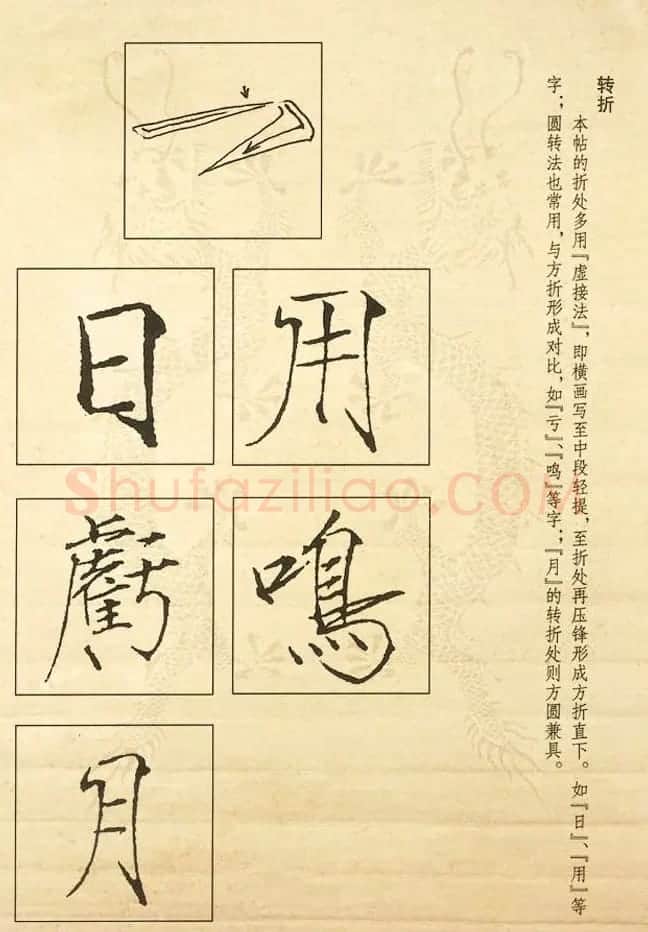 转折
本帖的折处多用『虚接法』，即横画写至中段轻提，至折处再压锋形成方折直下。如『日』、『用』等
字；圆转法也常用，与方折形成对比，如『亏』、『鸣』等字；『月』的转折处则方圆兼具。
用
日
鳴
虧
月
Shufaziliao.COM